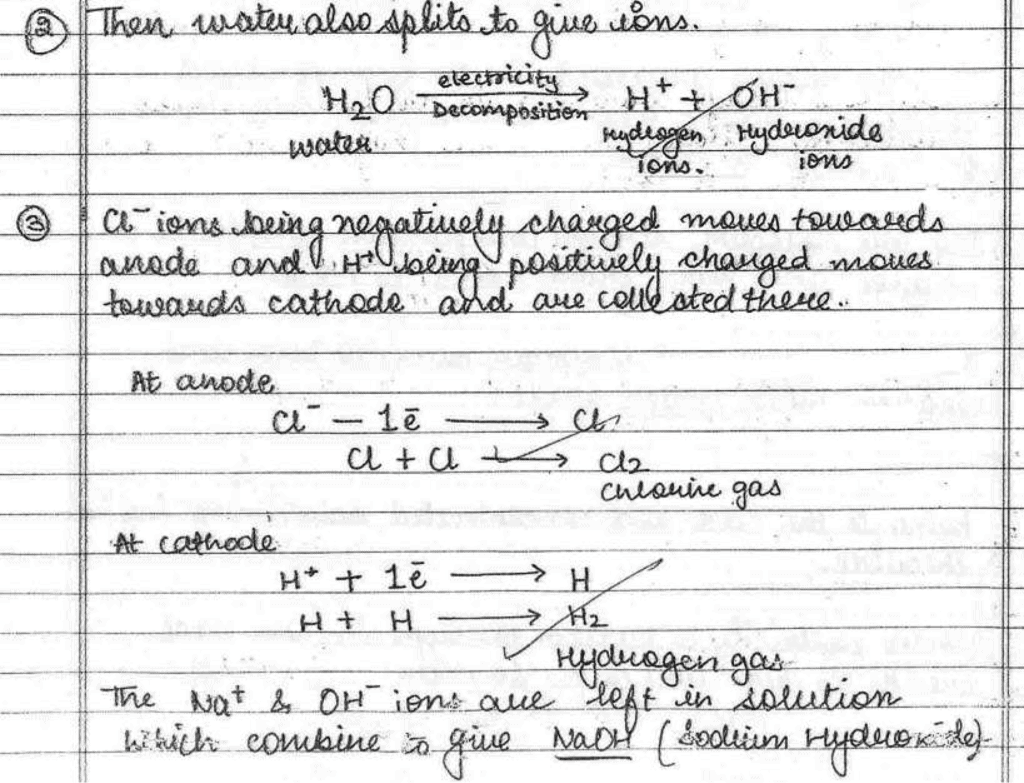 ② Then water also splits to give ions.
H₂O electricity Decomposition → H⁺ + OH⁻
water Hydrogen ions. Hydroxide ions
③ Cl⁻ ions being negatively charged moves towards
anode and H⁺ being positively charged moves
towards cathode and are collected there.
At anode
Cl⁻ – 1ē → Cl
Cl + Cl → Cl₂
Chlorine gas
At cathode
H⁺ + 1ē → H
H + H → H₂
Hydrogen gas
The Na⁺ & OH⁻ ions are left in solution
which combine to give NaOH (Sodium Hydroxide)